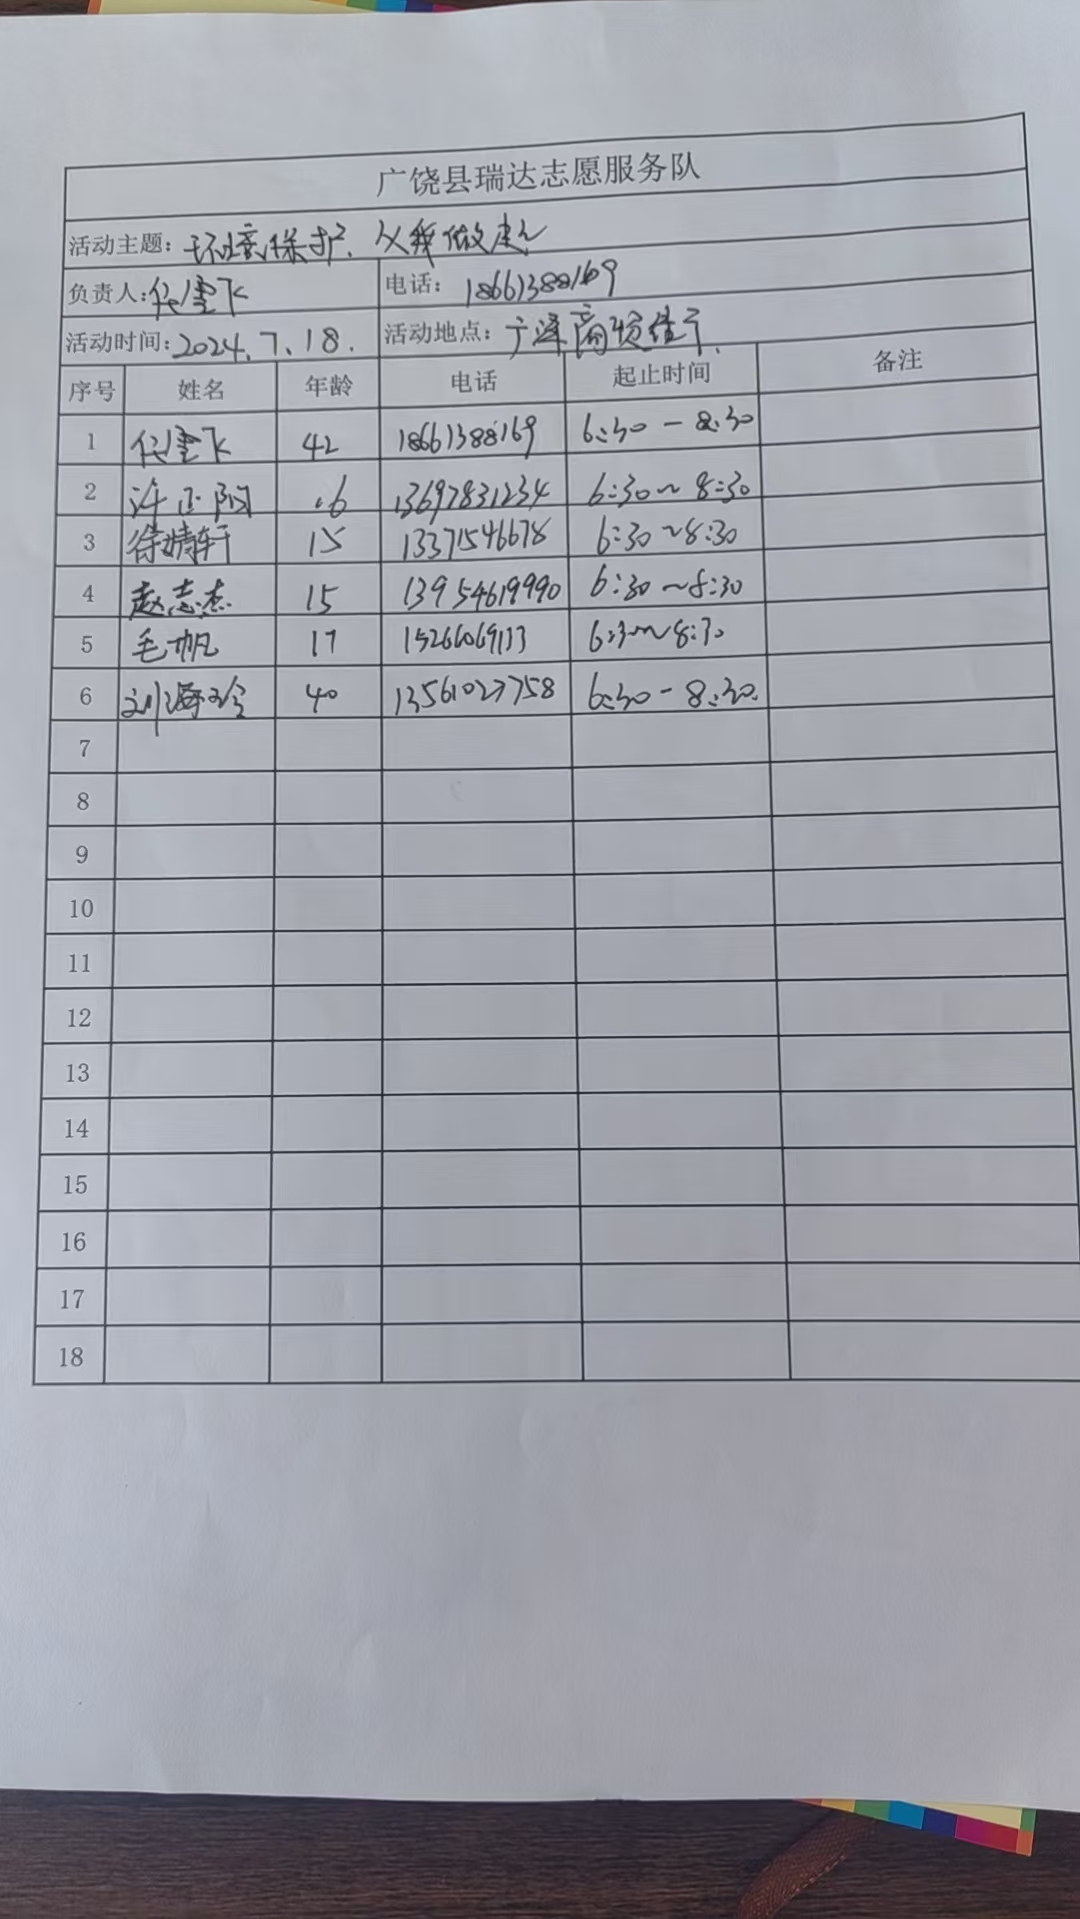 广饶县瑞达志愿服务队
活动主题: 环境保护. 从我做起
负责人: 代雪飞 电话: 18661388169
活动时间: 2024.7.18. 活动地点: 广泽商贸佳
序号 姓名 年龄 电话 起止时间 备注
1 代雪飞 42 18661388169 6:30-8:30
2 许正阳 16 13697831234 6:30~8:30
3 徐婧轩 15 13371546678 6:30~8:30
4 赵志杰 15 13954619990 6:30~8:30
5 毛帆 17 15266069133 6:30~8:30
6 刘海玲 40 13561027758 6:30-8:30.
7
8
9
10
11
12
13
14
15
16
17
18